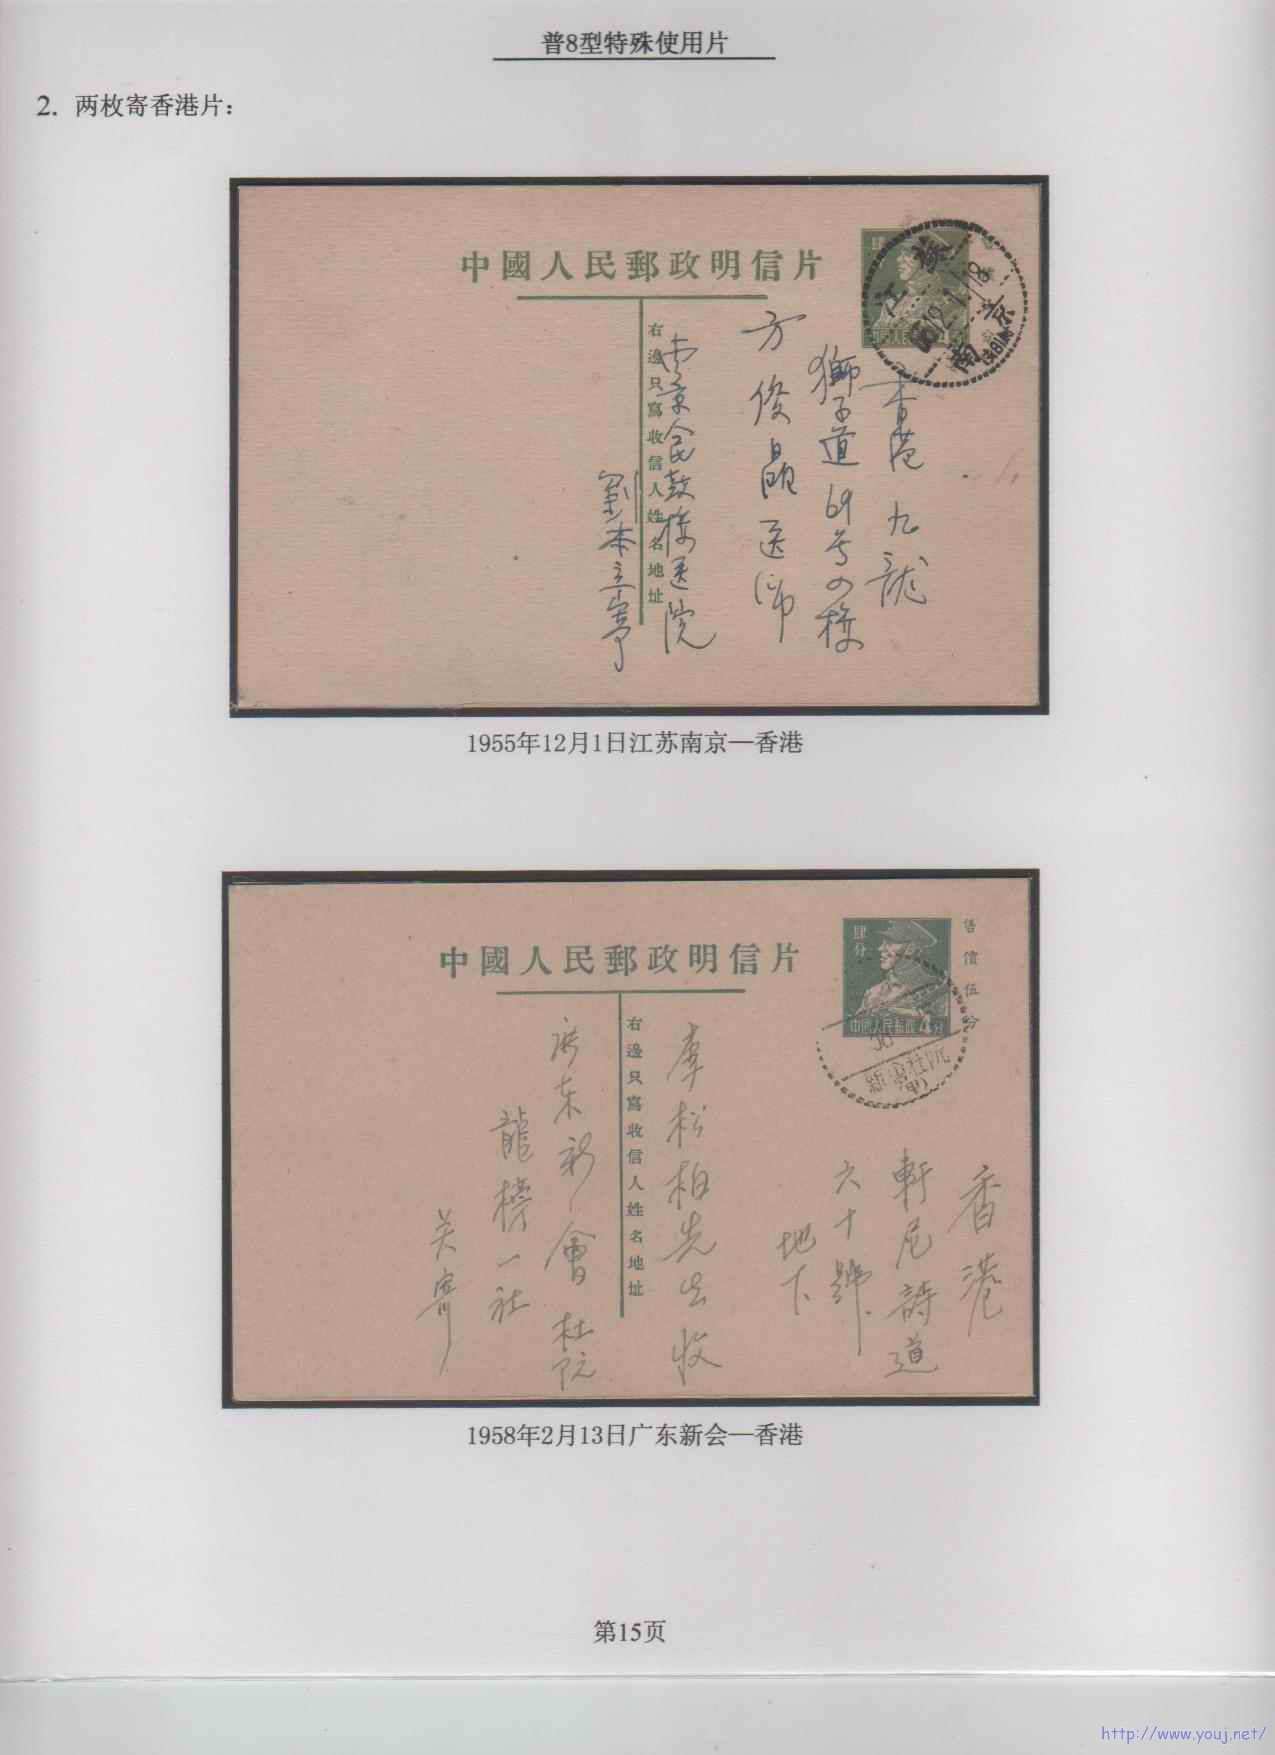 普8型特殊使用片
2. 两枚寄香港片：
中國人民郵政明信片
右邊只寫收信人姓名地址
香港九龍
獅子道69号
方俊晶医师
南京人民鼓楼医院
劉本立寄
江蘇
南京
1955年12月1日江苏南京—香港
中國人民郵政明信片
肆分
中國人民郵政4分
售價伍分
右邊只寫收信人姓名地址
香港
軒尼詩道
六十號
地下
松柏先生收
广东新會杜阮
龍榜一社
吴寄
1958年2月13日广东新会—香港
第15页
http://www.youj.net/